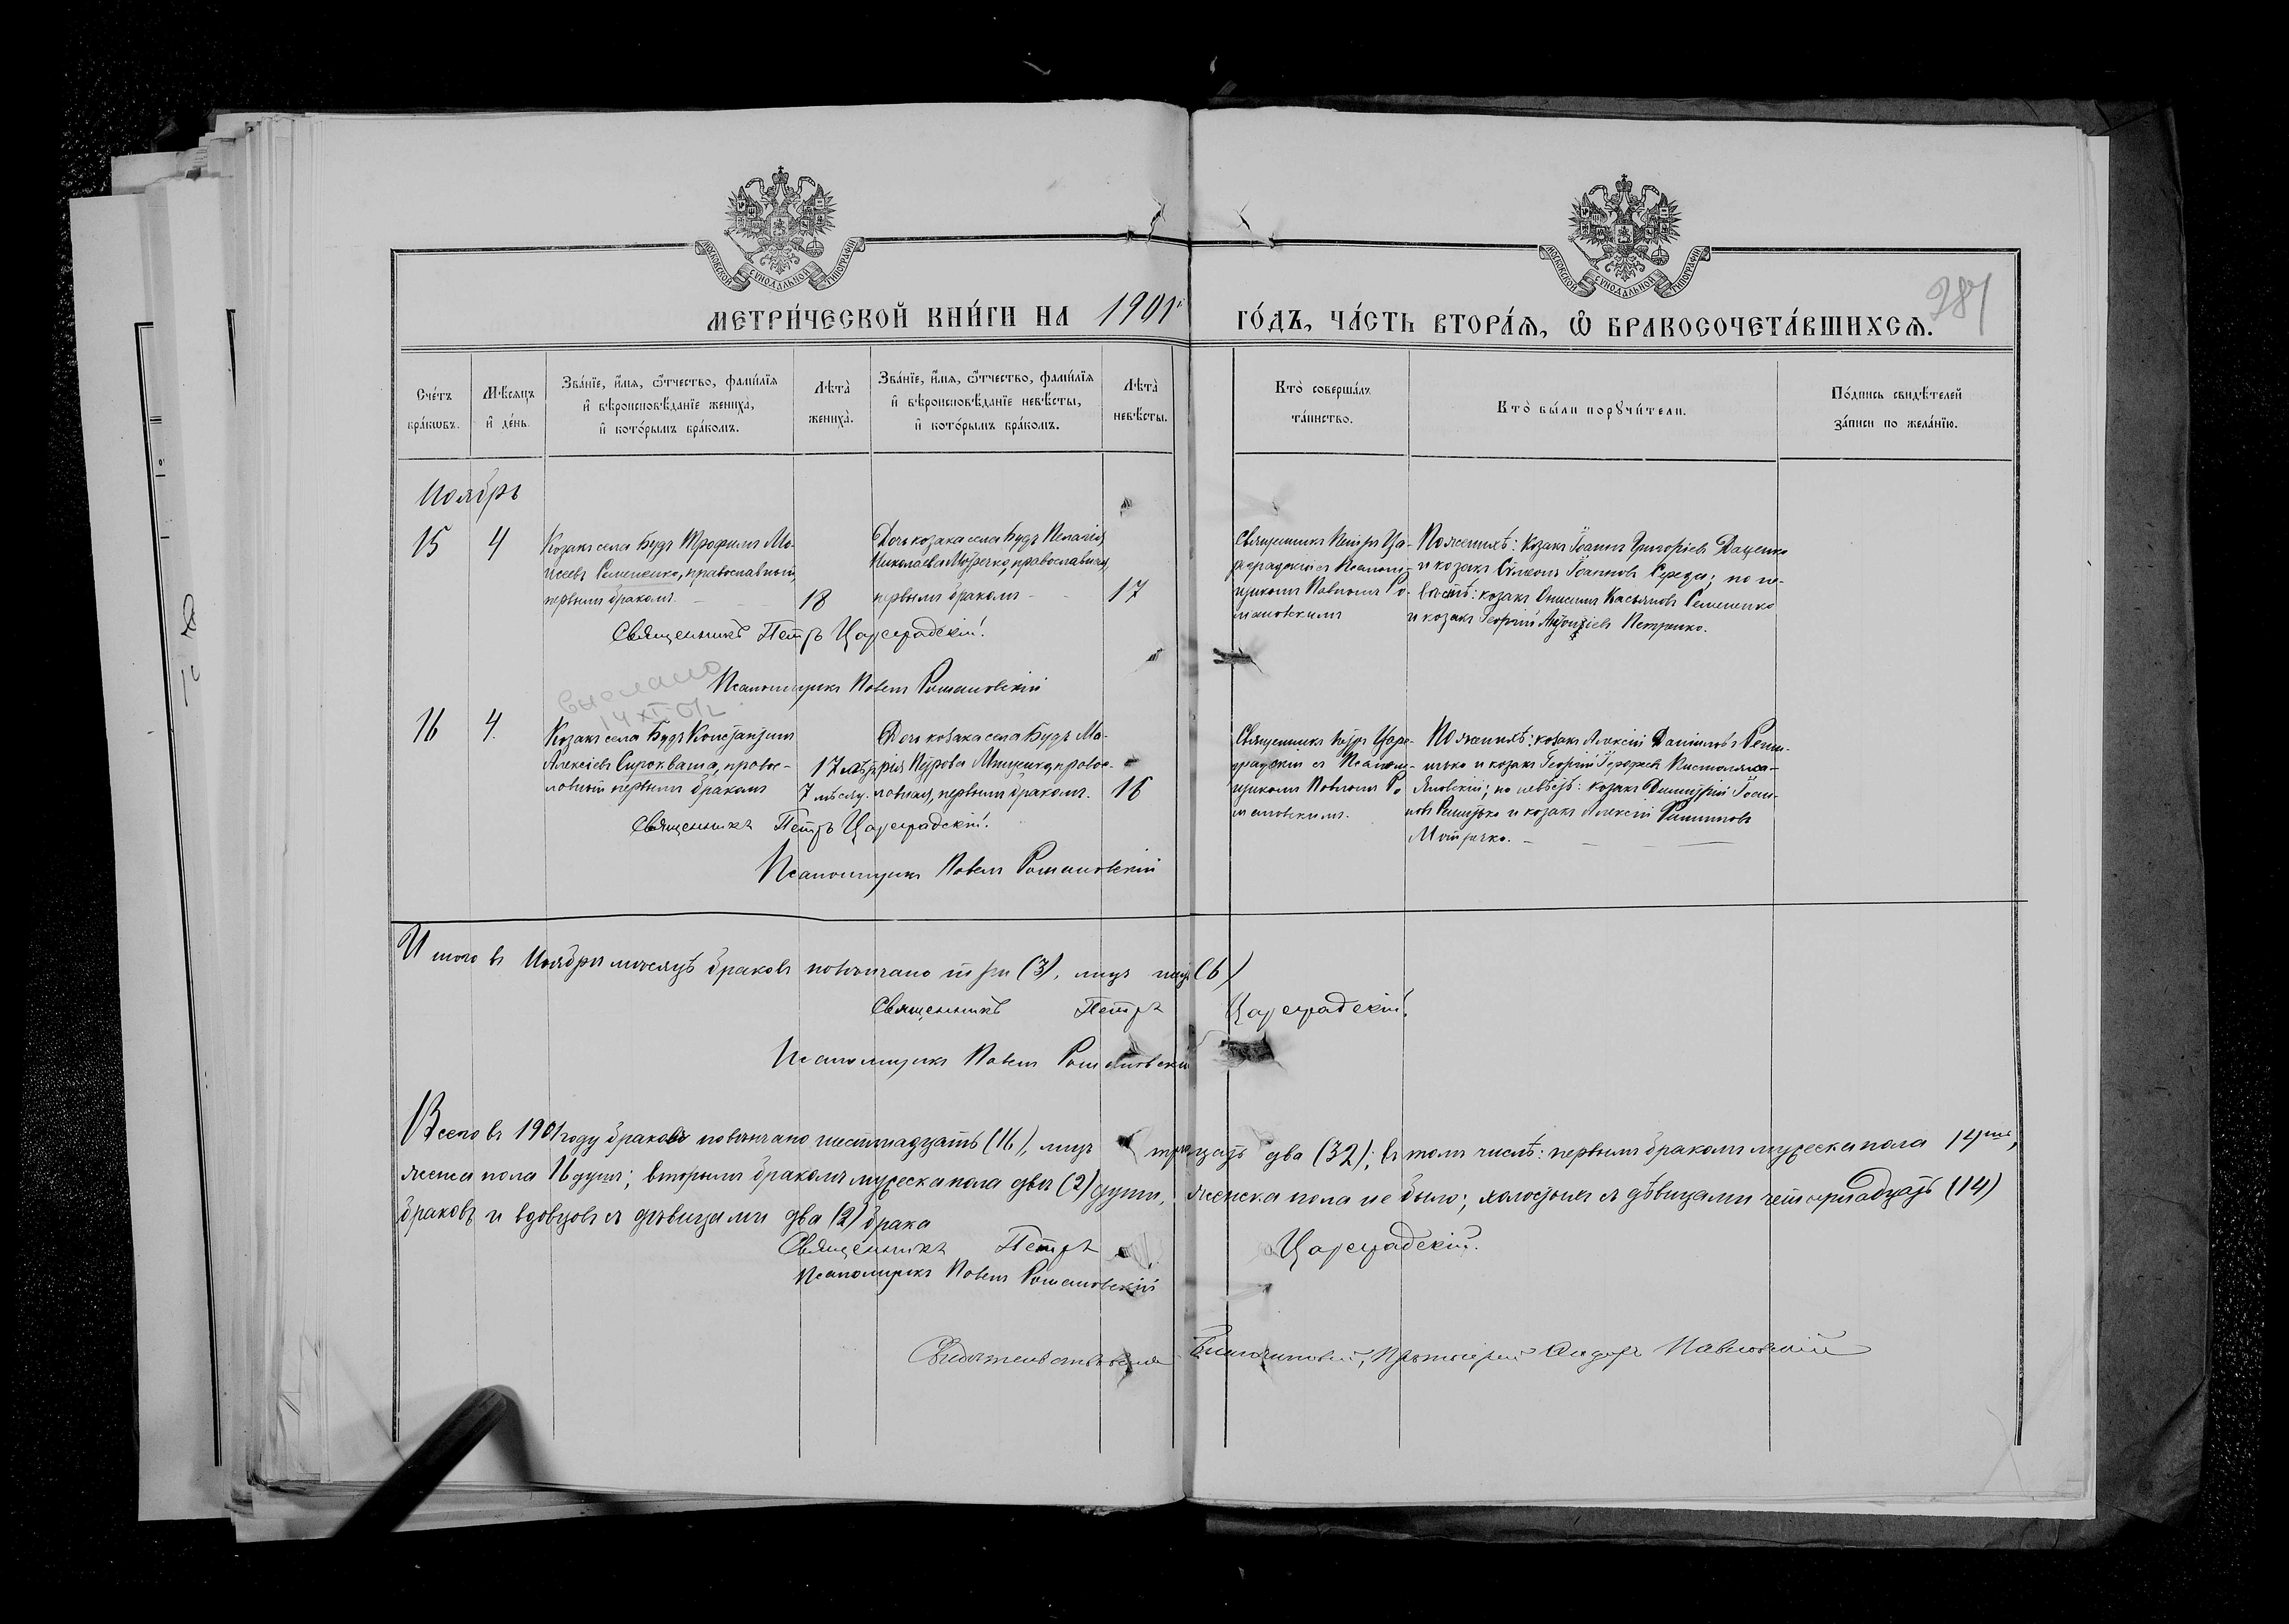 МОСКОВСКОЙ СѴНОДАЛЬНОЙ ТИПОГРАФІИ
МОСКОВСКОЙ СѴНОДАЛЬНОЙ ТИПОГРАФІИ
287
МЕТРИ́ЧЕСКОЙ КНИ́ГИ НА 1901й
ГО́ДЪ, ЧА́СТЬ ВТОРА́Ѧ, Ѽ БРАКОСОЧЕТА́ВШИХСѦ.
Сче́тъ бра́кѡвъ.
Мѣ́сяцъ и҆ де́нь.
Зва́нїе, и҆́мѧ, ѻ҆́тчество, фами́лїѧ
и҆ вѣроисповѣ́данїе жениха̀,
и҆ кото́рымъ бра́комъ.
Лѣта̀ жениха̀.
Зва́нїе, и҆́мѧ, ѻ҆́тчество, фами́лїѧ
и҆ вѣроисповѣ́данїе невѣ́сты,
и҆ кото́рымъ бра́комъ.
Лѣта̀ невѣ́сты.
Кто̀ соверша́лъ
та́инство.
Кто̀ бы́ли порꙋчи́тели.
По́дпись свидѣ́телей
за́писи по жела́нїю.
Ноябрь
15
4
Козакъ села Будъ Трофимъ Мо-
исеевъ Семененко, православный,
первымъ бракомъ
18
Дочь козака села Будъ Пелагія
Николаева Мотречко, православная,
первымъ бракомъ
17
Священникъ Петръ Ца-
реградскій съ Псалом-
щикомъ Павломъ Ро-
мановскимъ
По женихѣ: козакъ Іоаннъ Григоріевъ Даценко
и козакъ Сѵмеонъ Іоанновъ Середа; по не-
вѣстѣ: козакъ Онисимъ Касьяновъ Семененко
и козакъ Георгій Петренко.
Священникъ Петръ Цареградскій.
Псаломщикъ Павелъ Романовскій
16
4.
Козакъ села Будъ Константинъ
Алексіевъ Сырокваша, правос-
лавный первымъ бракомъ
17 лѣтъ
7 мѣсяц.
Дочь козака села Будъ Ма-
рія Петрова Мищенко, правос-
лавная, первымъ бракомъ.
16
Священникъ Петръ Царе-
градскій съ Псалом-
щикомъ Павломъ Ро-
мановскимъ.
По женихѣ: козакъ Алексій Даніиловъ Реши-
тько и козакъ Георгій
по невѣстѣ: козакъ Димитрій Іоан-
новъ Решитько и козакъ Алексій Филипповъ
Мотречко.
Священникъ Петръ Цареградскій.
Псаломщикъ Павелъ Романовскій
Итого въ Ноябрѣ мѣсяцѣ браковъ повѣнчано три (3), лицъ шесть (6)
Священникъ Петръ Цареградскій.
Псаломщикъ Павелъ Романовскій
Всего въ 1901 году браковъ повѣнчано шестнадцать (16), лицъ тридцать два (32); въ томъ числѣ: первымъ бракомъ мужеска пола 14
женска пола 16 душъ; вторымъ бракомъ мужеска пола двѣ (2) души, женска пола не было; холостыхъ съ дѣвицами четырнадцать (14)
браковъ и вдовцовъ съ дѣвицами два (2) брака
Священникъ Петръ Цареградскій.
Псаломщикъ Павелъ Романовскій
Благочинный, Протоіерей Павловскій